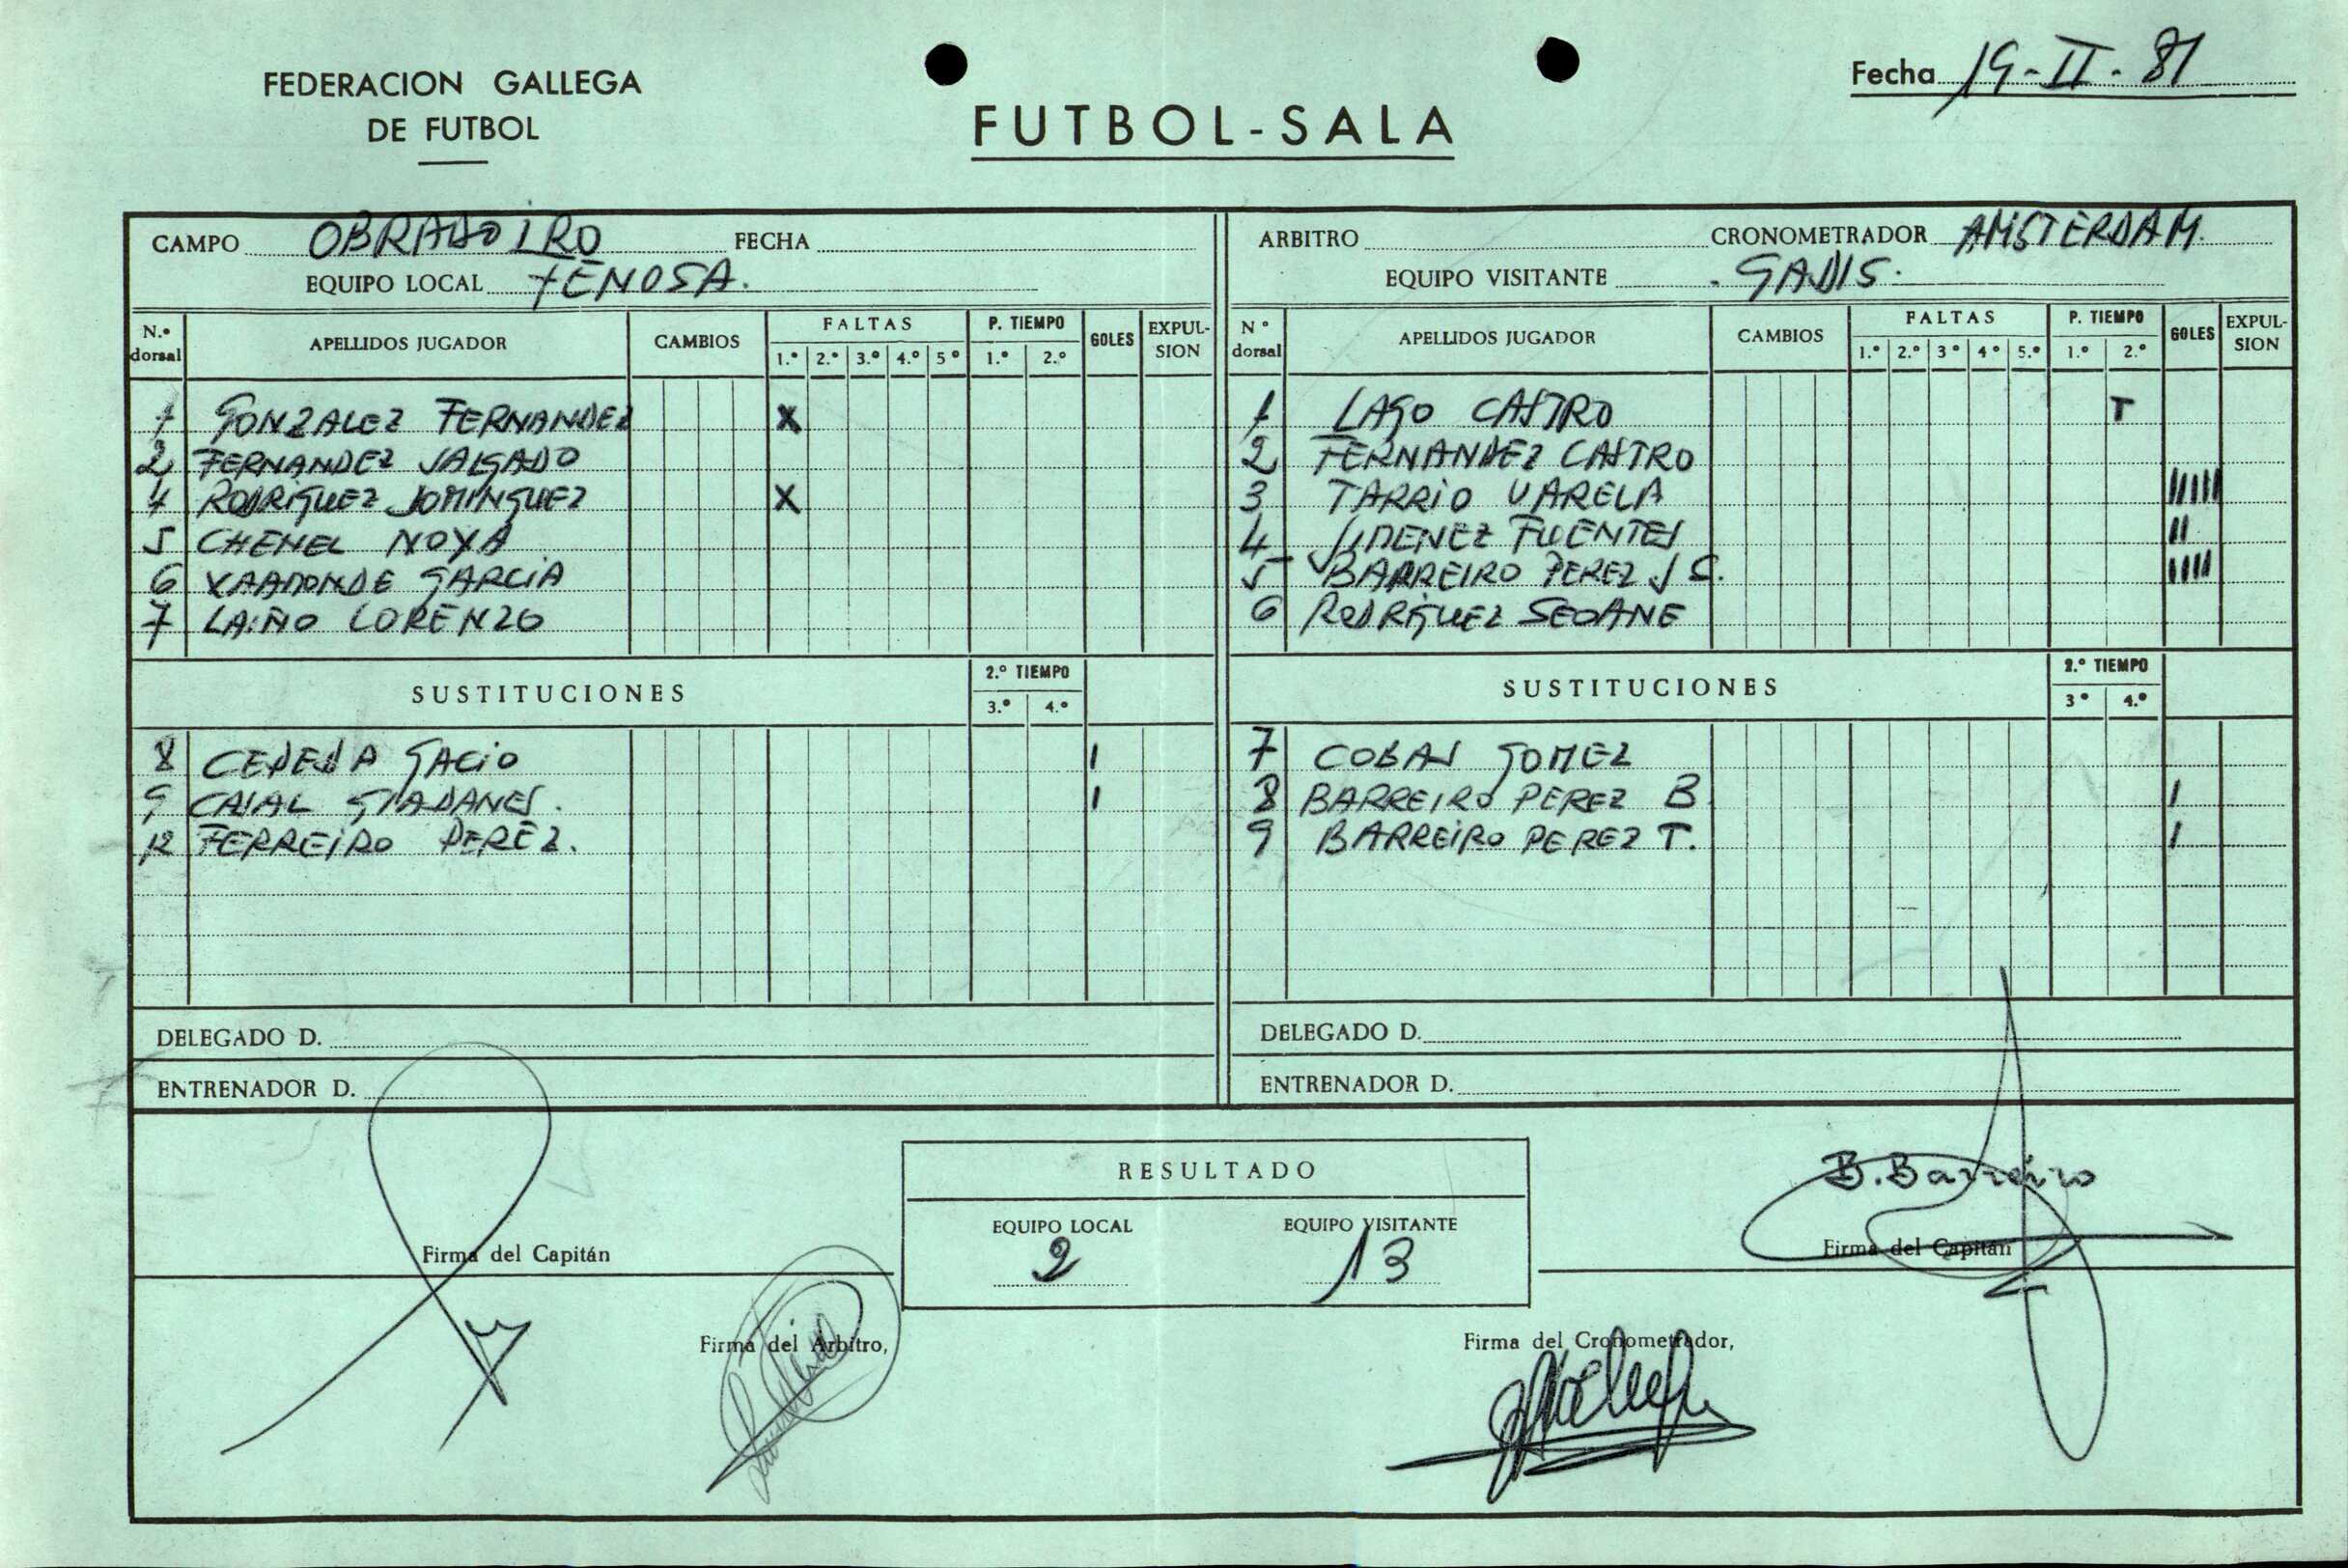 FEDERACION GALLEGA
DE FUTBOL
FUTBOL-SALA
Fecha 19-II-81
CAMPO OBRADOIRO FECHA
EQUIPO LOCAL FENOSA.
ARBITRO CRONOMETRADOR AMSTERDAM.
EQUIPO VISITANTE GADIS.
N.º dorsal APELLIDOS JUGADOR CAMBIOS FALTAS 1.º 2.º 3.º 4.º 5º P. TIEMPO 1.º 2.º GOLES EXPULSION
1 GONZALEZ FERNANDEZ X
2 FERNANDEZ SALGADO
4 RODRIGUEZ DOMINGUEZ X
5 CHENEL NOYA
6 VAAMONDE GARCIA
7 LAIÑO LORENZO
SUSTITUCIONES 2.º TIEMPO 3.º 4.º
8 GACIO I
9 CASAL I
12 FERREIRO PEREZ.
DELEGADO D.
ENTRENADOR D.
Nº dorsal APELLIDOS JUGADOR CAMBIOS FALTAS 1.º 2.º 3º 4º 5.º P. TIEMPO 1.º 2.º GOLES EXPULSION
1 LAGO CASTRO T
2 FERNANDEZ CASTRO
3 TARRIO VARELA IIIII
4 JIMENEZ FUENTES II
5 BARREIRO PEREZ J C. IIII
6 RODRIGUEZ SEOANE
SUSTITUCIONES 2.º TIEMPO 3º 4.º
7 COBAS GOMEZ
8 BARREIRO PEREZ B I
9 BARREIRO PEREZ T. I
DELEGADO D.
ENTRENADOR D.
RESULTADO
EQUIPO LOCAL EQUIPO VISITANTE
2 13
B. Barreiro
Firma del Capitán
Firma del Capitán
Firma del Arbitro,
Firma del Cronometrador,